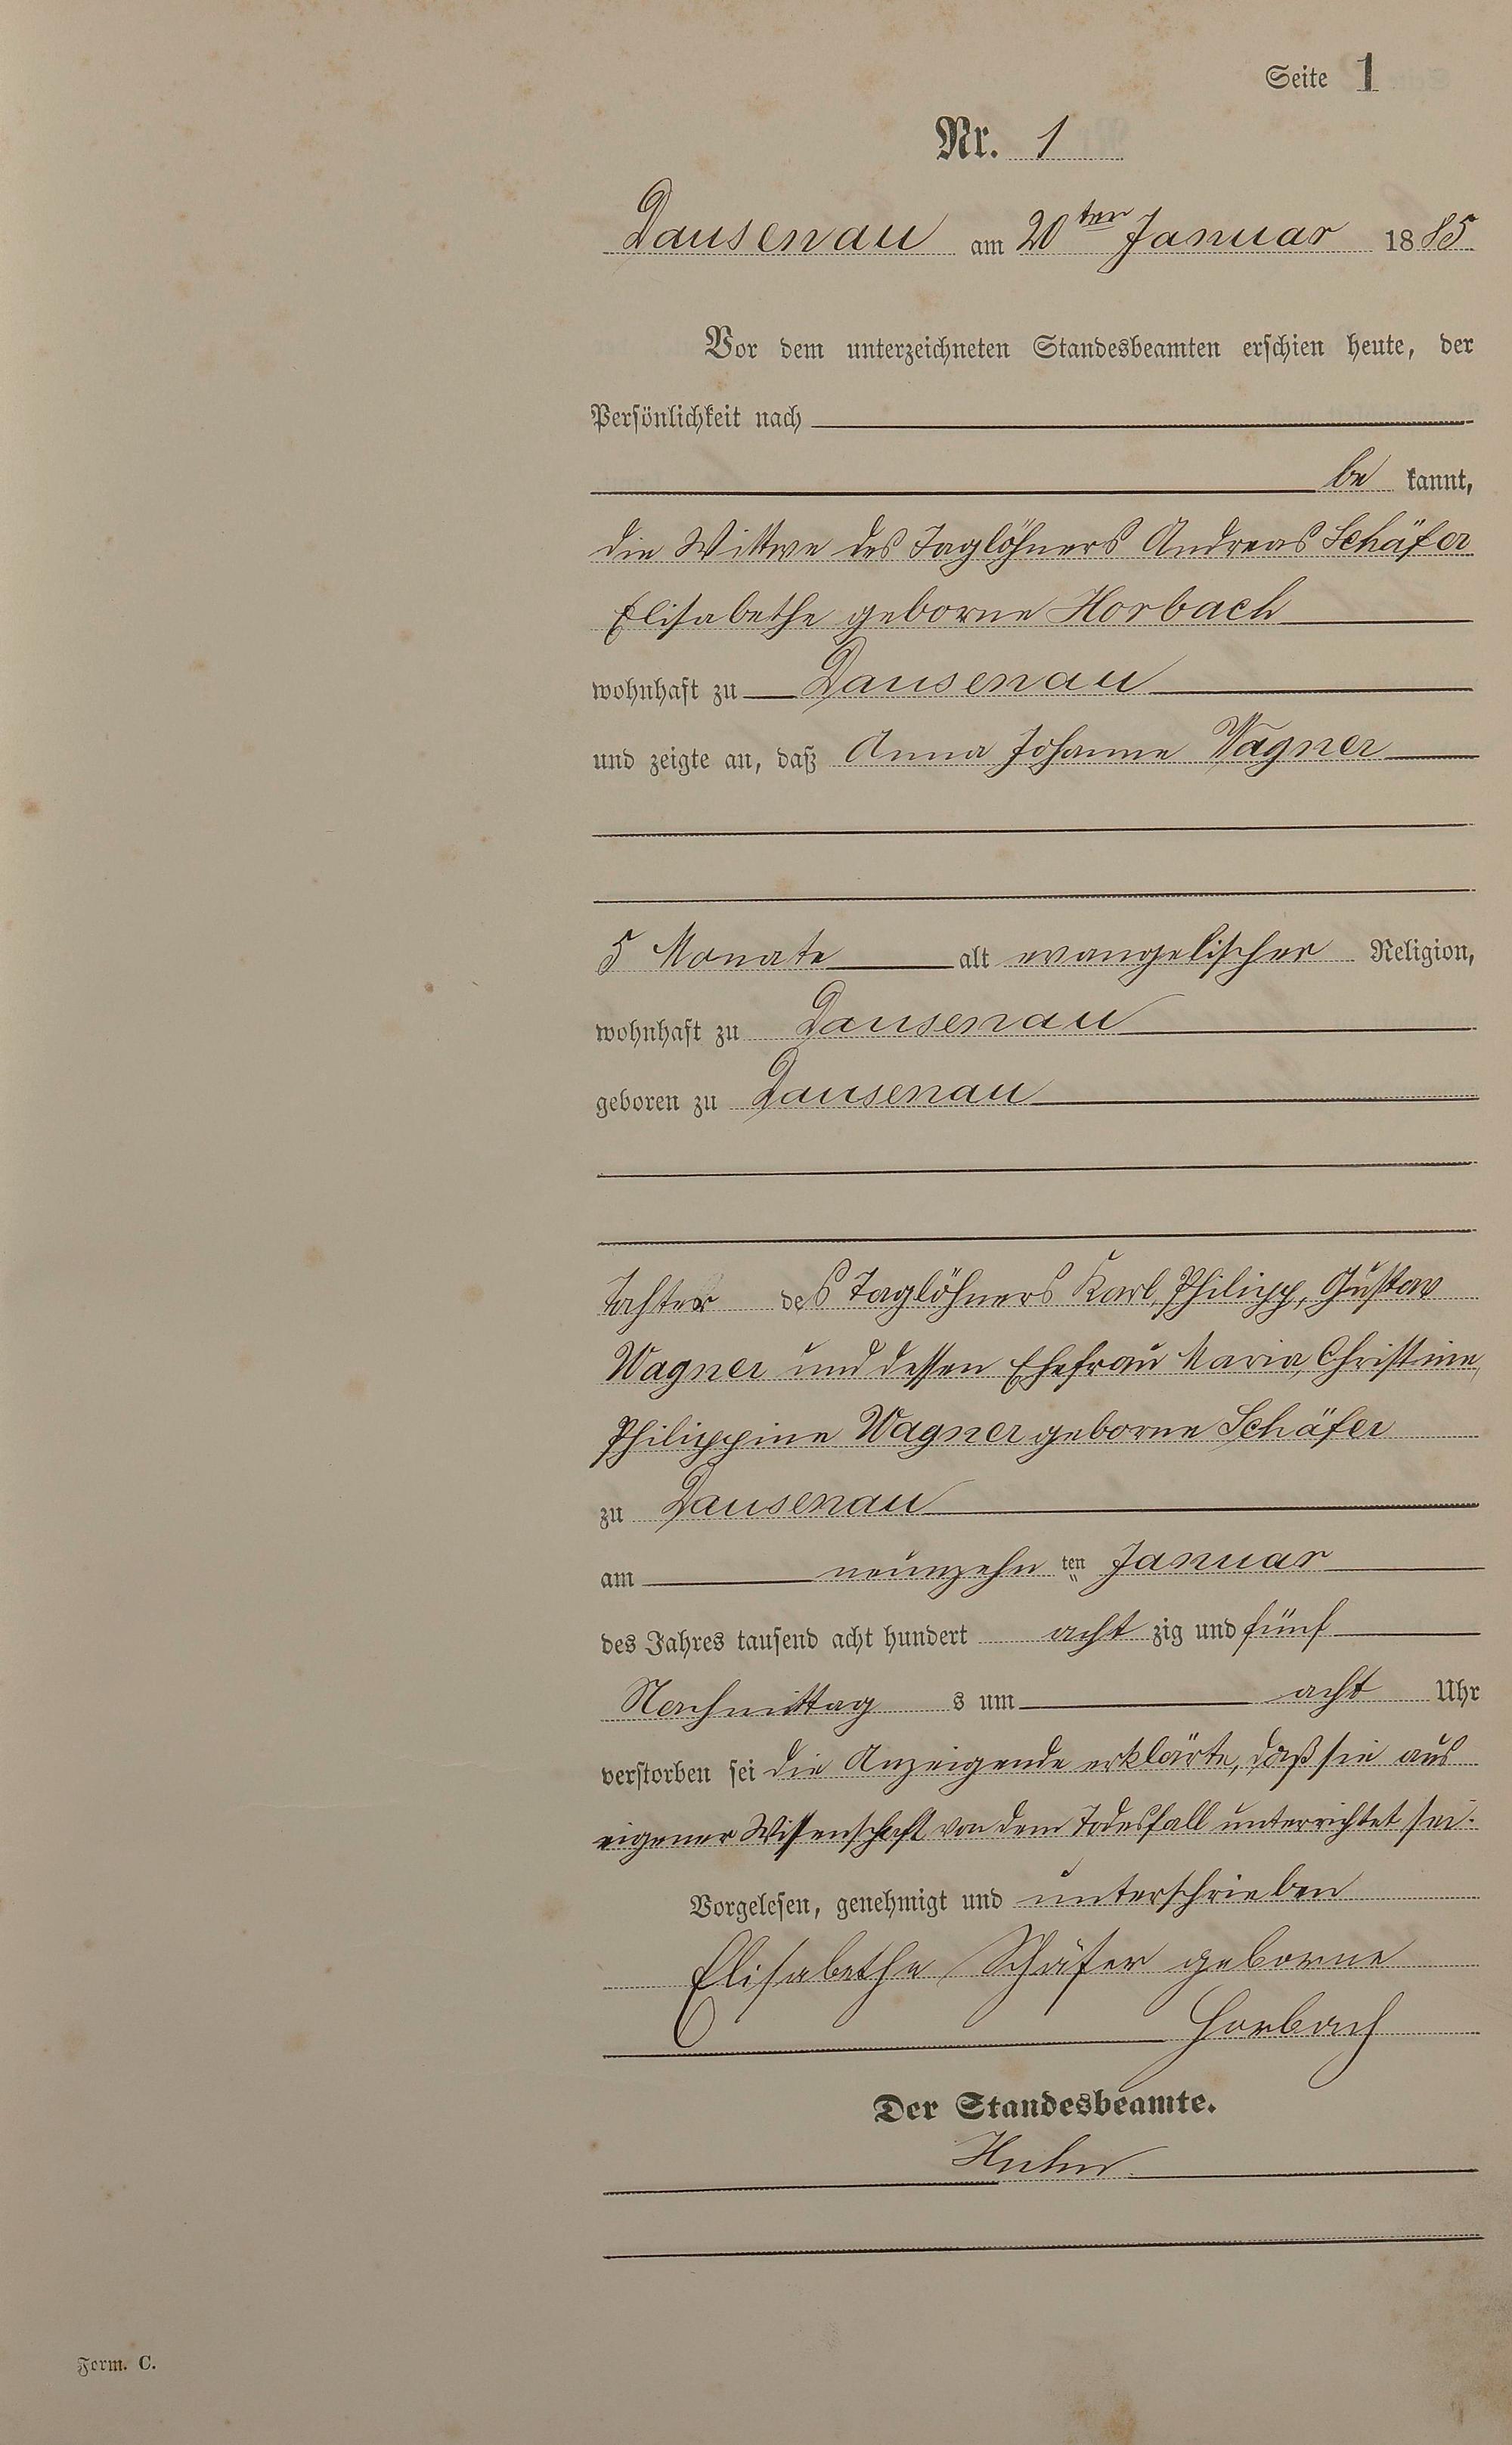 Seite 1
Nr. 1
Dausenau am 20ten Januar 1885
Vor dem unterzeichneten Standesbeamten erschien heute, der
Persönlichkeit nach
be kannt,
die Wittwe des Taglöhners Andreas Schäfer
Elisabethe geborne Horbach
wohnhaft zu Dausenau
und zeigte an, daß Anna Johanne Wagner
5 Monate alt evangelischer Religion,
wohnhaft zu Dausenau
geboren zu Dausenau
Tochter des Taglöhners Karl, Philipp, Gustav
Wagner und dessen Ehefrau Maria, Christine,
Philippine Wagner geborne Schäfer
zu Dausenau
am neunzehn ten Januar
des Jahres tausend acht hundert acht zig und fünf
Nachmittag s um acht Uhr
verstorben sei die Anzeigende erklärte, daß sie aus
eigener Wissenschaft von dem Todesfall unterrichtet sei.
Vorgelesen, genehmigt und unterschrieben
Elisabethe Schäfer geborne
Horbach
Der Standesbeamte.
Form. C.